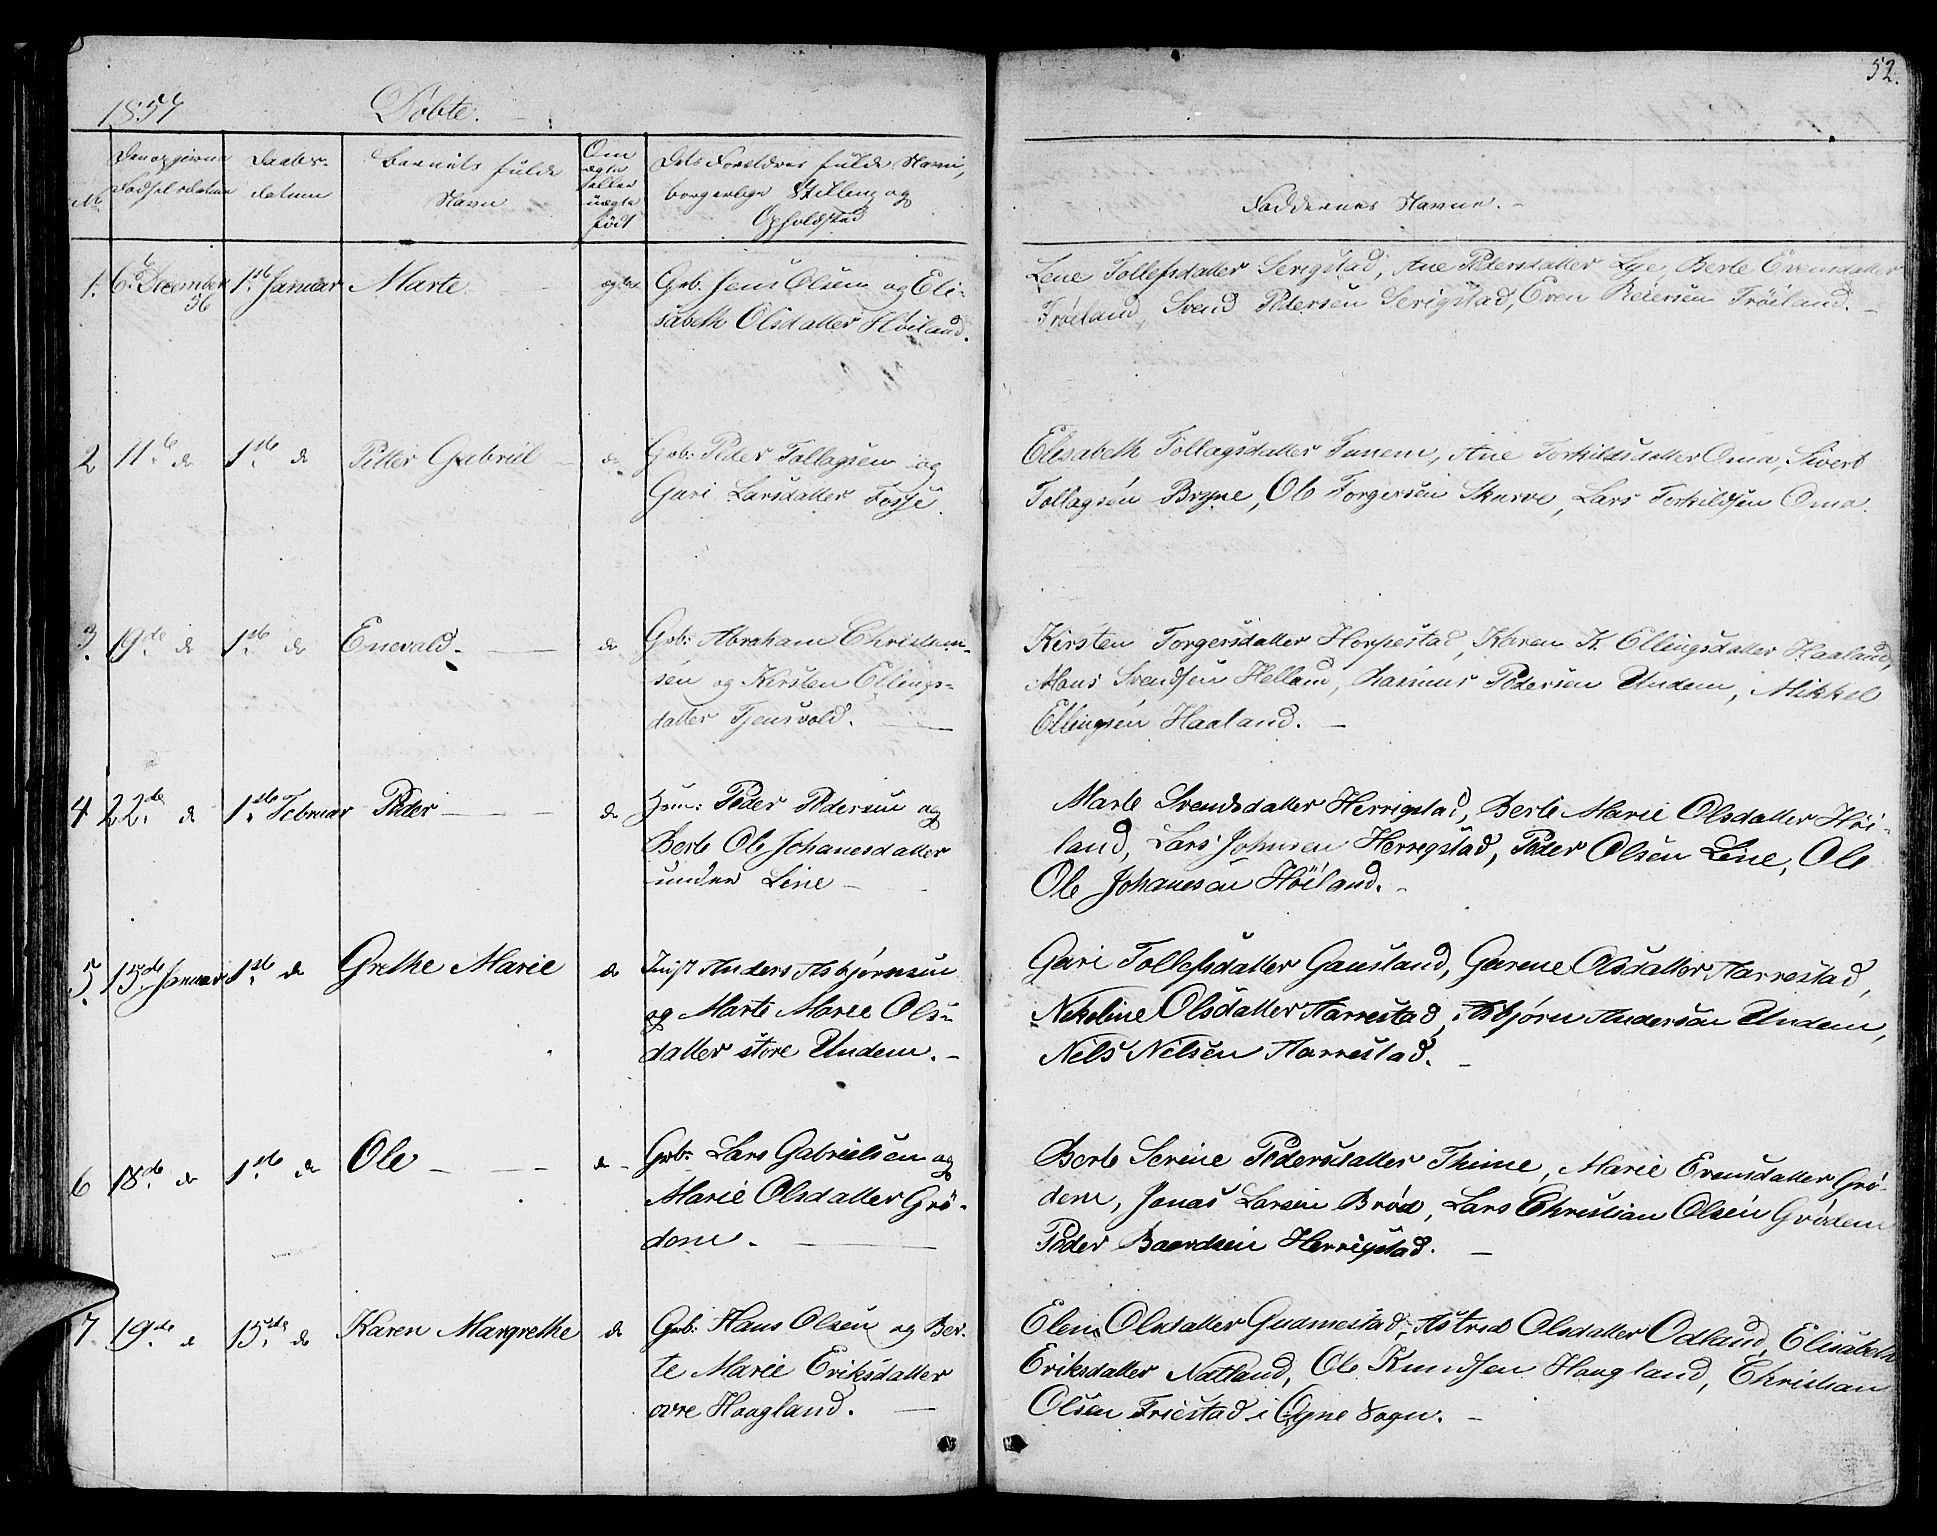 52.
1857 Døbte.
No. Den opgivne Fødselsdatum
Daabs-datum
Barnets fulde Navn
Om ægte eller uægte født
Dets Forældres fulde Navn, borgerlige Stilling og Opholdsted
Faddernes Navne. -
1. 6te December 56 1ste Januar Marte ægte Gbr. Jens Olsen og Eli-
sabeth Olsdatter Høiland.
Lene Tollefsdatter Serigstad, Ane Pedersdatter Lye, Berte Evensdatter
Frøiland, Svend Pedersen Serigstad, Even Reiersen Frøiland. -
2 11te do 1ste do Pitter Gabriel do Gbr: Peder Tollagsen og
Guri Larsdatter Fosse.
Elisabeth Tollagsdatter Tunem, Ane Torkildsdatter Oma, Sivert
Tollagsen Bryne, Ole Torgersen Skurve, Lars Torkildsen Oma.
3. 19de do 1ste do Enevald. do Gbr: Abraham Christen-
sen og Kirsten Ellings-
datter Tjensvold.
Kirsten Torgersdatter Horpestad, Karen K. Ellingsdatter Haaland,
Mons Svendsen Helland, Rasmus Pedersen Undem, Mikkel
Ellingsen Haaland. -
4 22de do 1ste Februar Peder do Hum: Peder Pedersen og
Berte Ole Johanesdatter
under Line -
Marte Svendsdatter Herrigstad, Berte Marie Olsdatter Høi-
land, Lars Johnsen Herregstad, Peder Olsen Line, Ole
Ole Johanesen Høiland. -
5. 15de Januar 1ste do Grethe Marie do Inst Anders Asbjørnsen
og Marte Marie Ols-
datter store Undem. -
Guri Tollefsdatter Gausland, Gurene Olsdatter Aarrestad,
Nikoline Olsdatter Aarrestad, Asbjørn Andersen Undem,
Nels Nilsen Aarrestad. -
6 18de do 1ste do Ole do Gbr: Lars Gabrielsen og
Marie Olsdatter Grø-
dem.
Berte Serine Pedersdatter Thime, Marie Evensdatter Grø-
dem, Jonas Larsen Brød, Lars Christian Olsen Grødem
Peder Baardsen Herrigstad. -
7 19de do 15de do Karen Margrethe do Gbr: Hans Olsen og Ber-
te Marie Eriksdatter
øvre Haagland.
Elen Olsdatter Gudmestad, Astrid Olsdatter Odland, Elisabeth
Eriksdatter Natland, Ole Knudsen Haagland, Christian
Olsen Friestad i Ogne Sogn. -